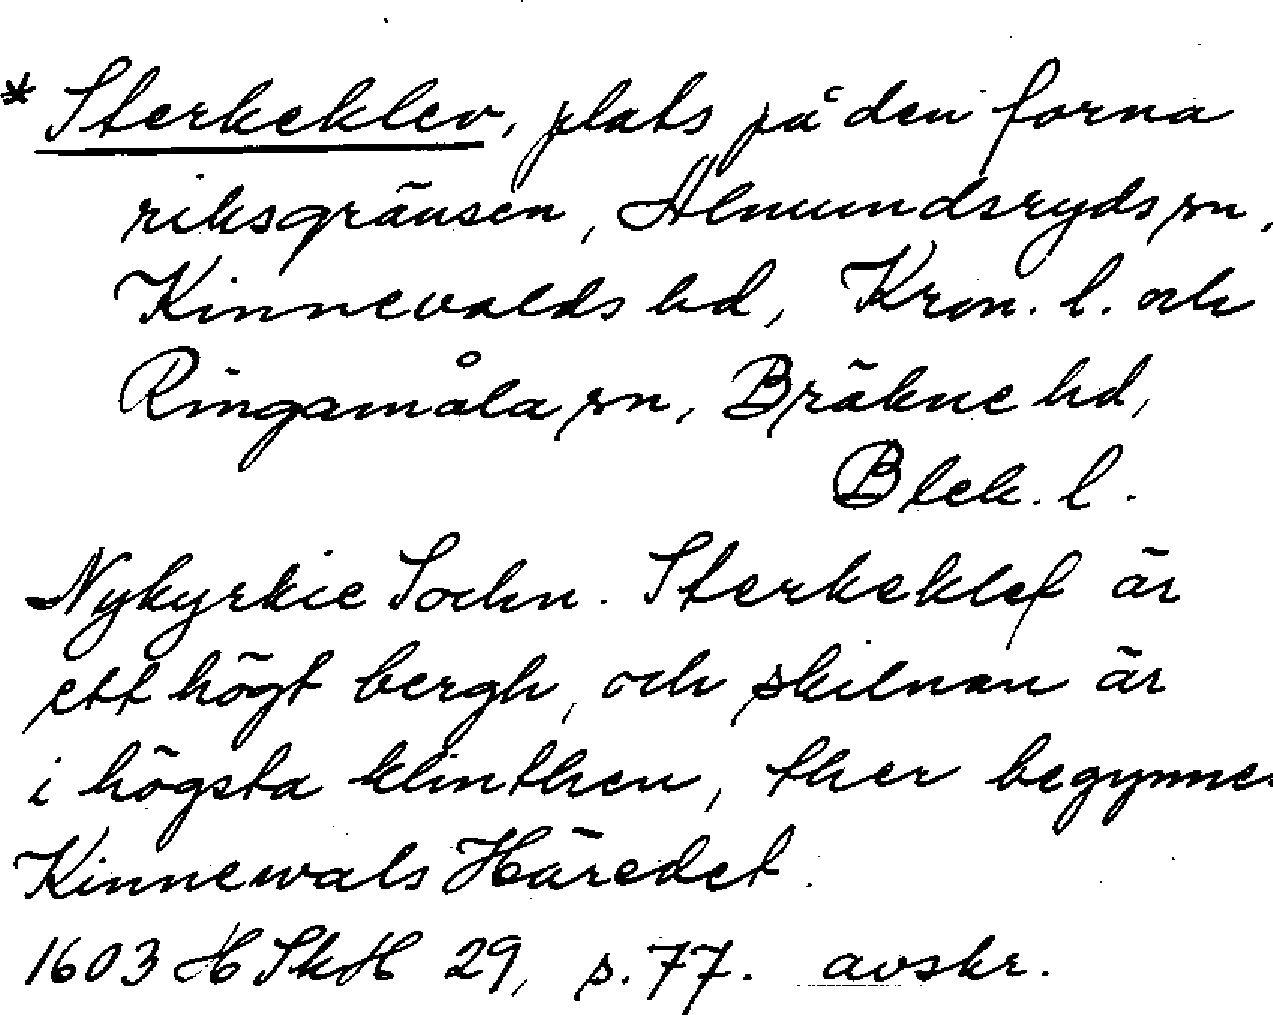 * Sterkeklev, plats på den forna
riksgränsen, Älmundsryds sn,
Kinnevalds hd, Kron. l. och
Ringamåla sn, Bräkne hd,
Blek. l.
Nykyrkie Sochn. Sterkeklef är
ett högt bergh, och skilnan är
i högsta klinthen, ther begynnes
Kinnewals Häredet.
1603 HSkH 29, s. 77. avskr.